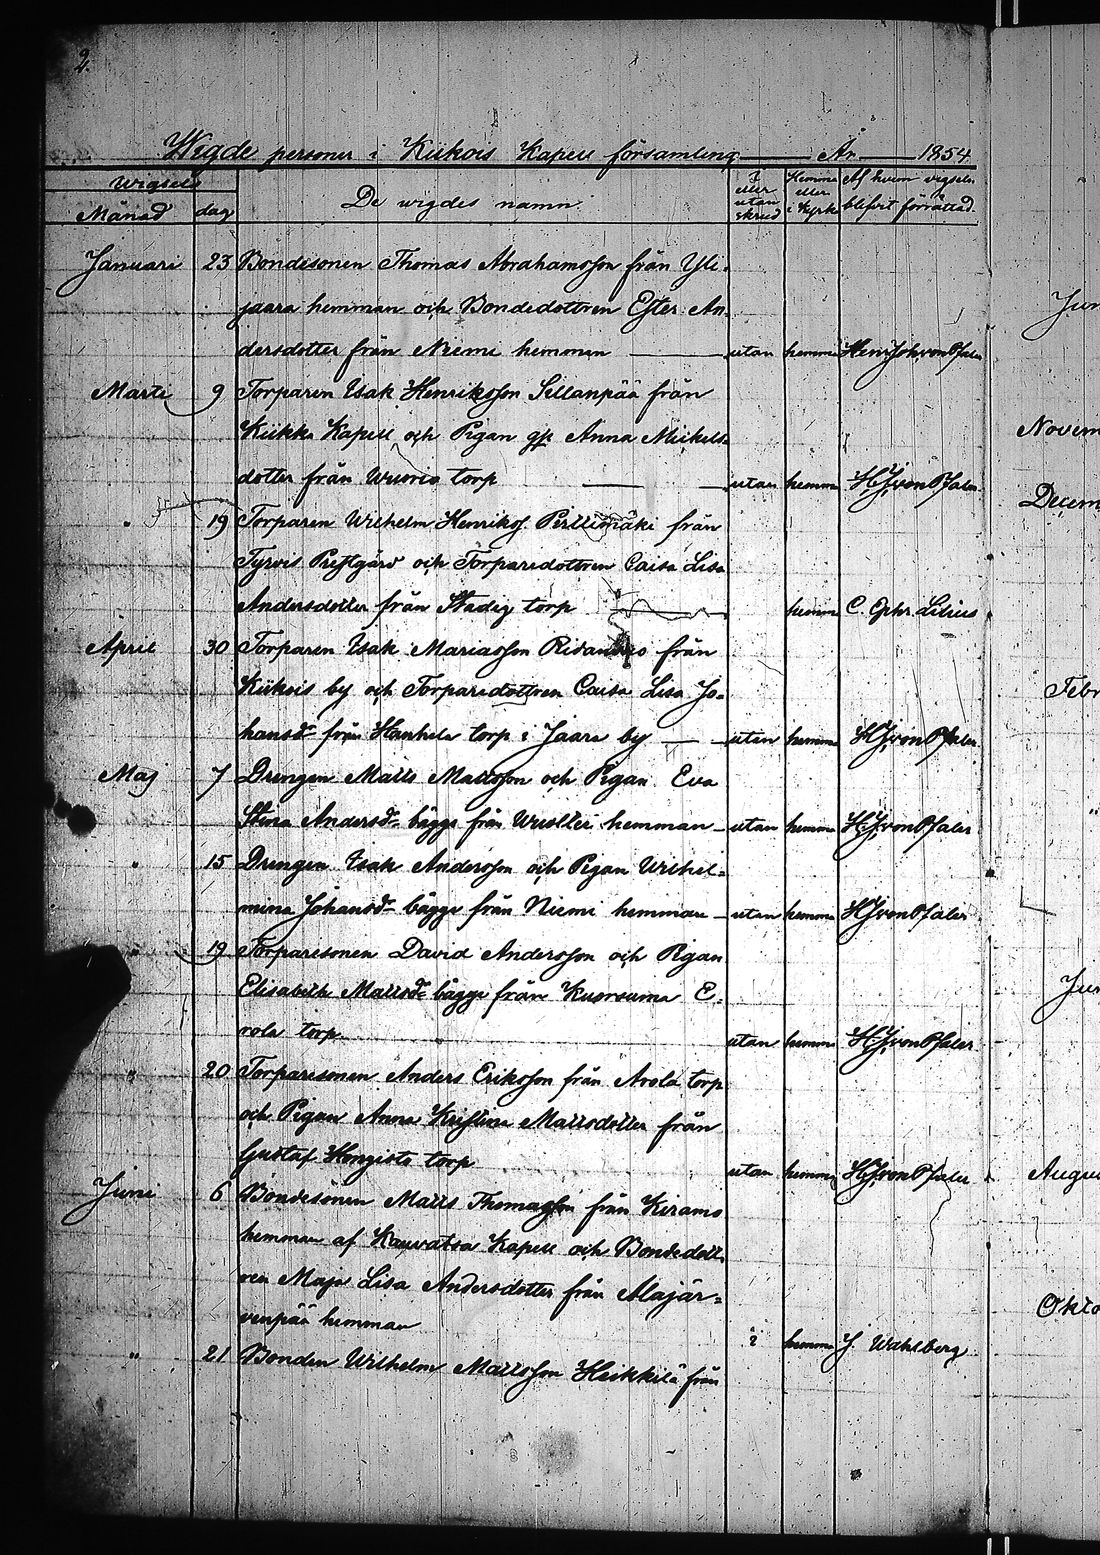 2.
Wigde personer i Kiikois Kapell församling År 1854
Wigsels
Månad dag De wigdes namn. I eller utan skrud Hemma eller i Kyrka Af hvem vigseln blifvit förrättad.
Januari 23 Bondesonen Thomas Abrahamsson från Yli-
jaara hemman och Bondedottren Ester An-
dersdotter från Niemi hemman utan hemma Henr. Joh. von Pfaler
Marti 9 Torparen Isak Henriksson Sillanpää från
Kiikka Kapell och Pigan Anna Mickels-
dotter från torp utan hemma H.J. von Pfaler
" 19 Torparen Wilhelm Henrikss. från
Tyrvis Prestgård och Torparedottren Caisa Lisa
Andersdotter från Stadig torp hemma C. Lilius
April 30 Torparen Isak Mariasson från
Kiikois by och Torparedottren Caisa Lisa Jo-
hansd från Hanhela torp i Jaara by utan hemma H.J. von Pfaler
Maj 7 Drengen Matts Mattsson och Pigan Eva
Stina Andersd bägge från hemman utan hemma H.J. von Pfaler
" 15 Drengen Isak Andersson och Pigan Wilhel-
mina Johansd bägge från Niemi hemman utan hemma H.J. von Pfaler
" 19 Torparesonen David Andersson och Pigan
Elisabeth Mattsd bägge från E-
rola torp utan hemma H.J. von Pfaler
" 20 Torparesonen Anders Eriksson från Arola torp
och Pigan Anna Kristina Mattsdotter från
Gustaf Hongisto torp utan hemma H.J. von Pfaler
Juni 6 Bondesonen Matts Thomasson från Kiramo
hemman af Kauvatsa Kapell och Bondedott-
ren Maja Lisa Andersdotter från Alajär-
venpää hemman i hemma J. Wahlberg
" 21 Bonden Wilhelm Mattsson Heikkilä från
Novem
Decem
Febr
"
Augu
Okto